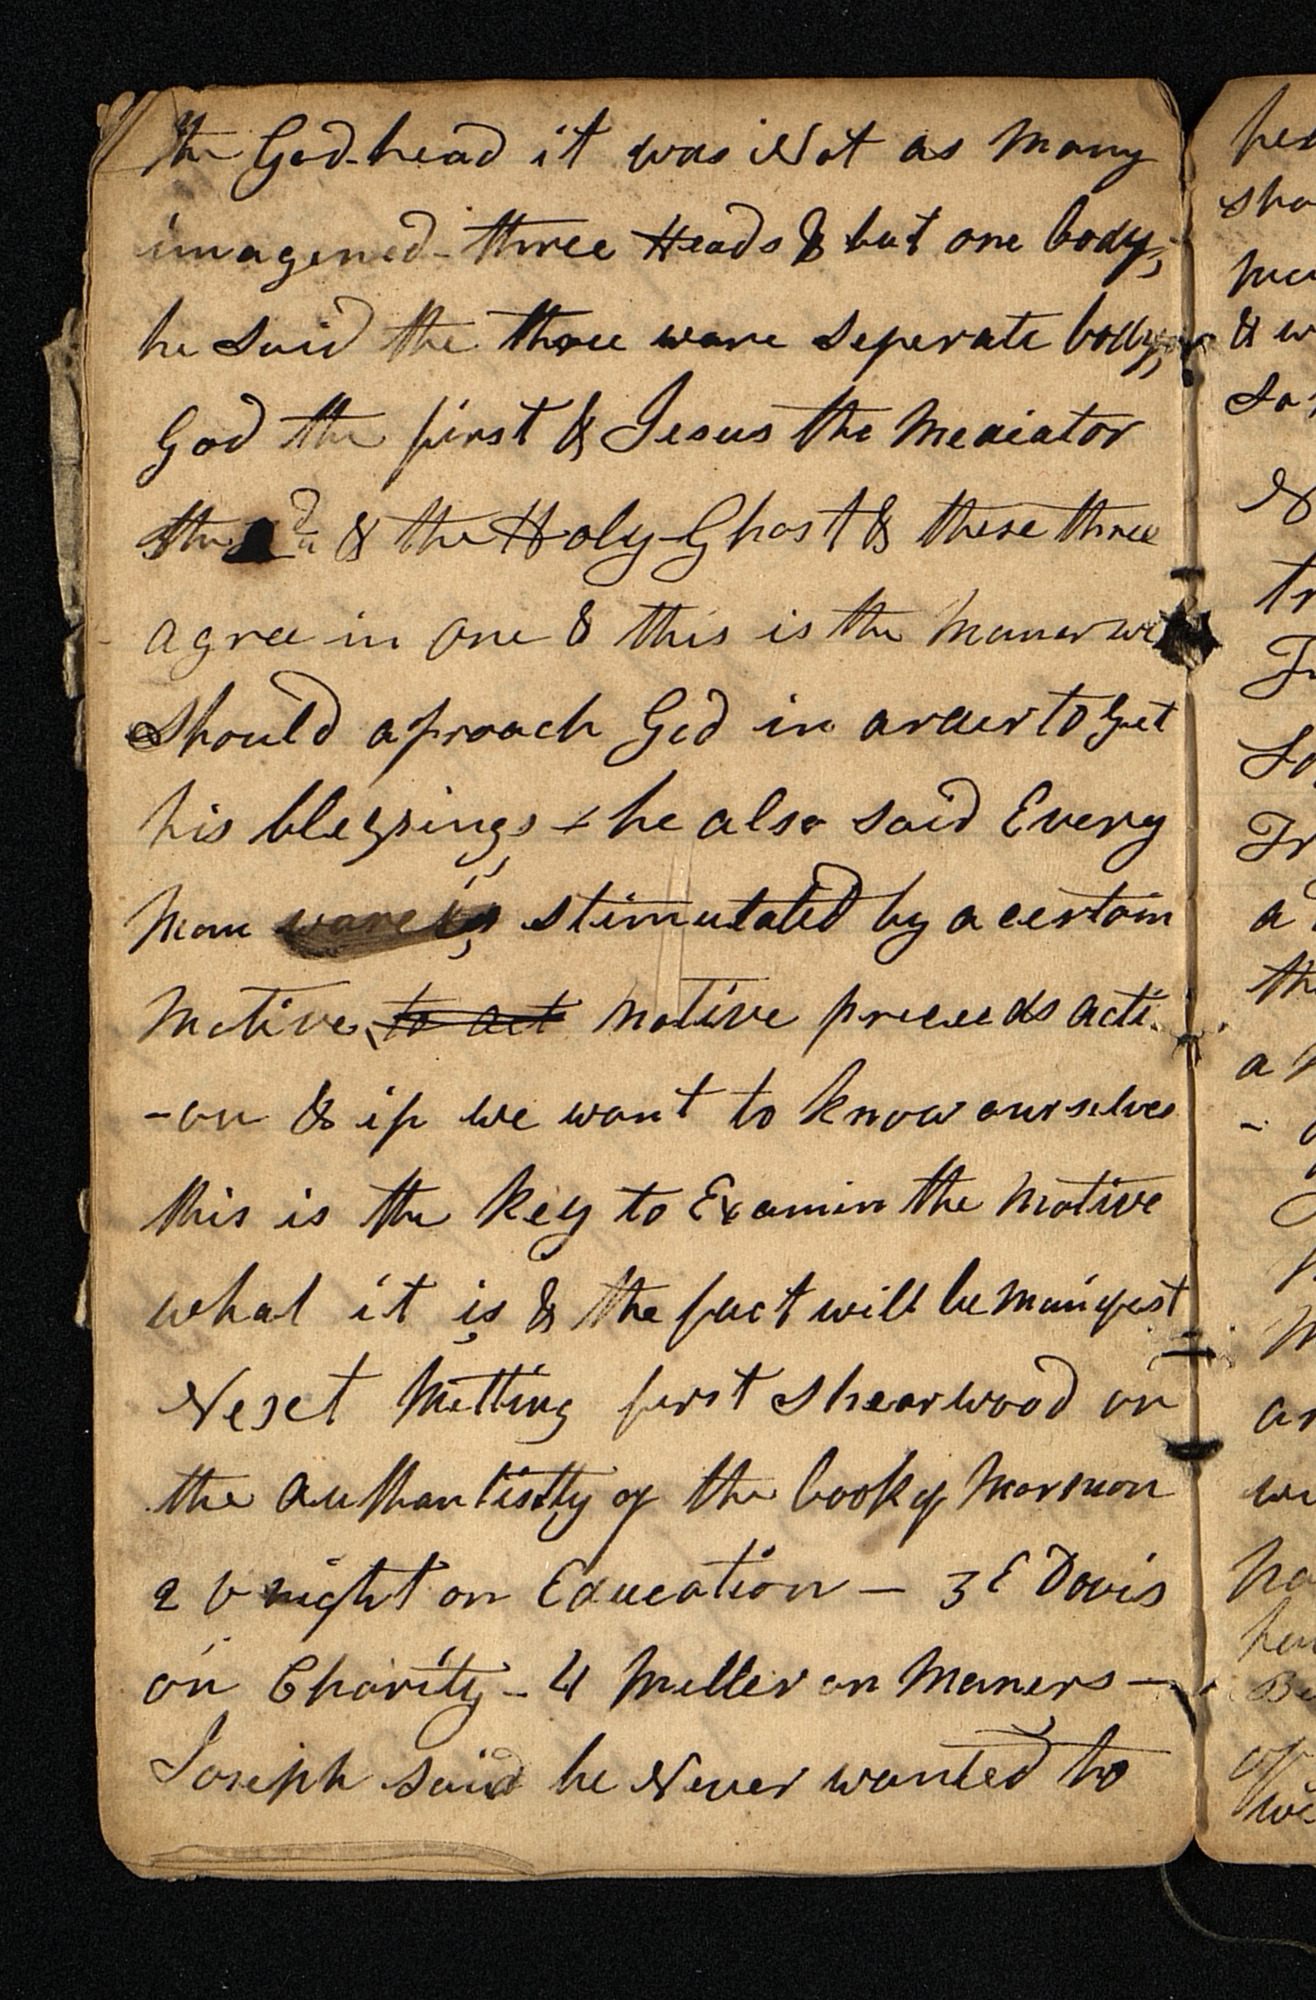 the God-head it was Not as many
imagened - three Heads & but one body,
he said the three ware seperate bodys,
God the first & Jesus the Mediator
the 2d & the Holy Ghost & these three
agree in one & this is the Maner we
should aproach God in order to get
his blessings & he also said Every
Man ware is stimutated by a certain
Motive to act motive preceeds acti
-on & if we want to know ourselves
this is the key to Examin the Motive
what it is & the fact will be manifest
Nexct Mitting first Shearwood on
the Authantisity of the book of Mormon
2 on Education - 3 E Davis
on Charity - 4 Miller on Maners -
Joseph said he Never wanted to